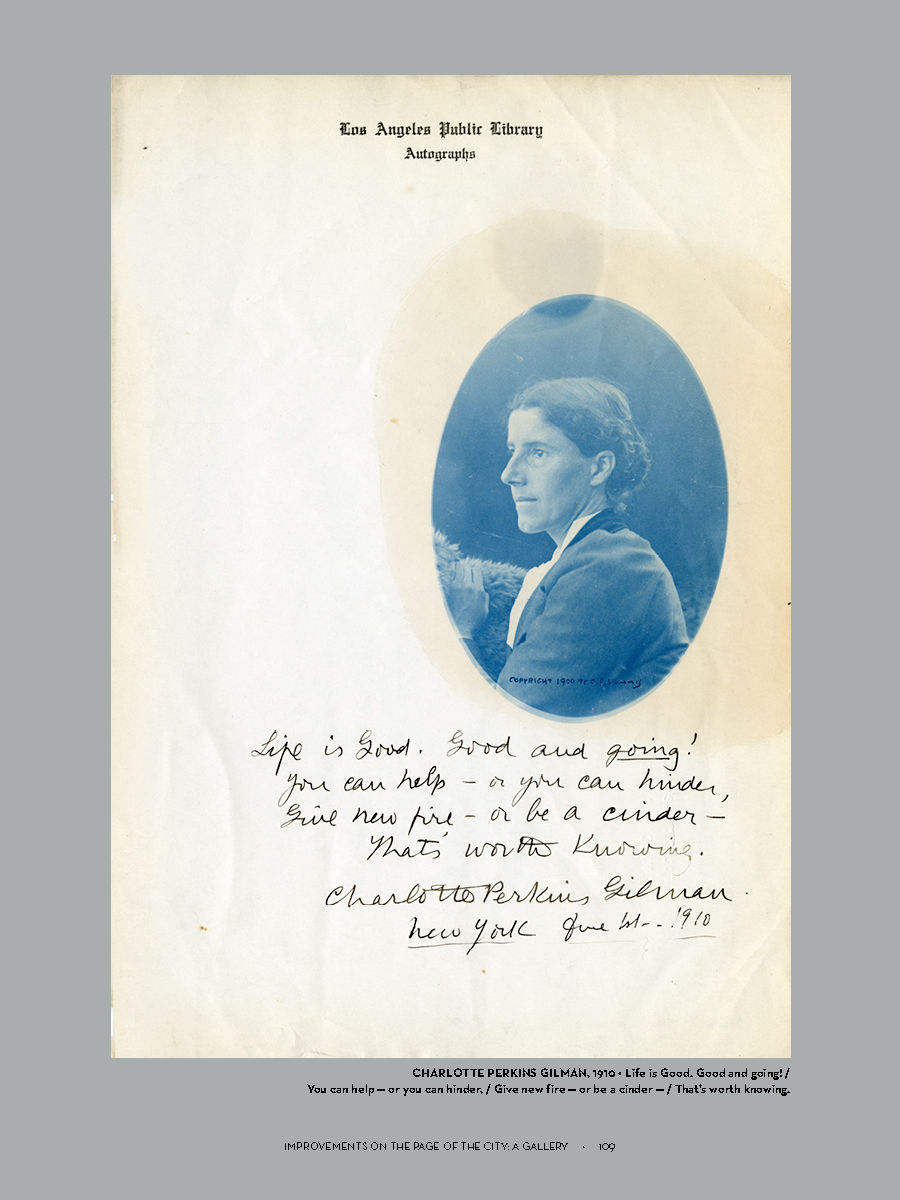 Los Angeles Public Library
Autographs
COPYRIGHT 1900 BY C.F. Lummis
Life is Good. Good and going!
You can help – or you can hinder,
Give new fire – or be a cinder –
That's worth Knowing.
Charlotte Perkins Gilman.
New York June 1st - - 1910
CHARLOTTE PERKINS GILMAN, 1910 • Life is Good. Good and going! /
You can help — or you can hinder, / Give new fire — or be a cinder — / That's worth knowing.
IMPROVEMENTS ON THE PAGE OF THE CITY: A GALLERY • 109